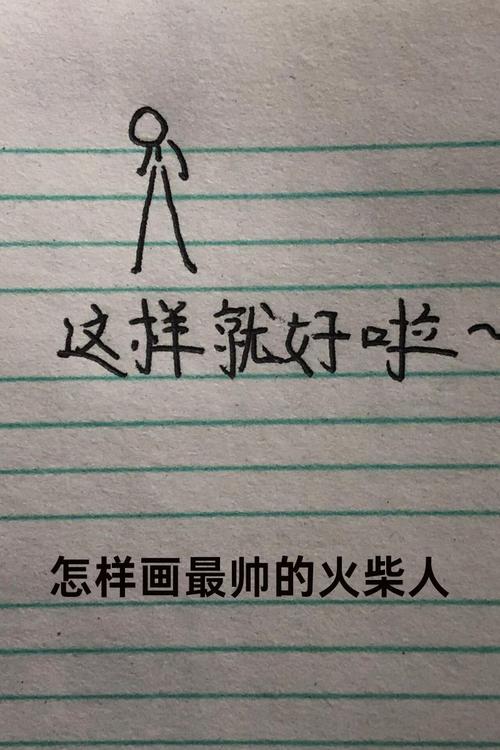 这样就好啦~
怎样画最帅的火柴人